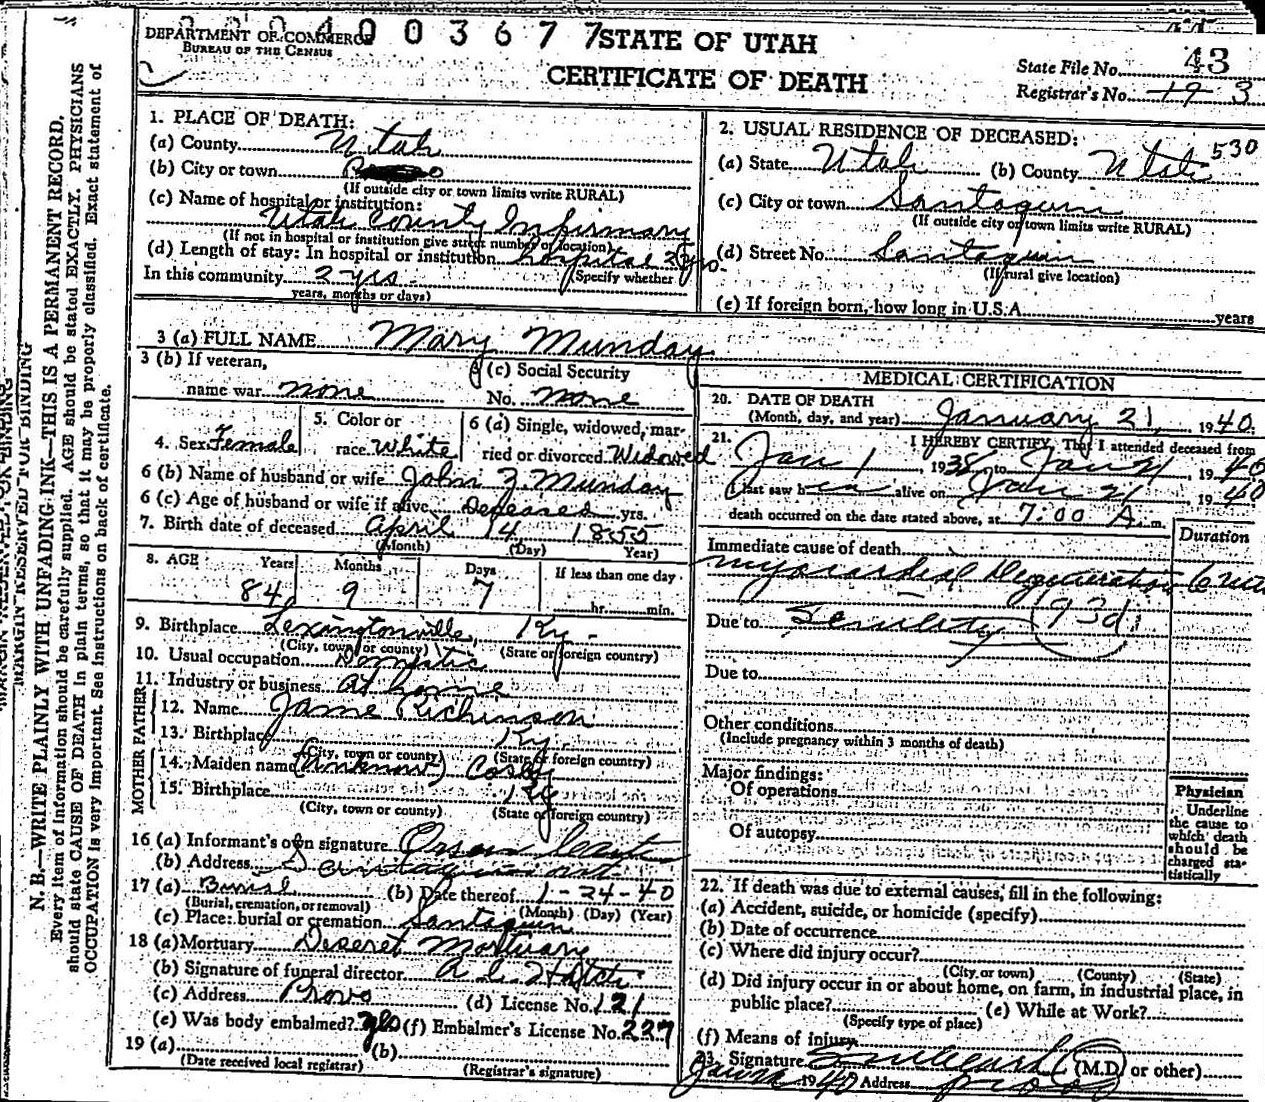 DEPARTMENT OF COMMERCE
BUREAU OF THE CENSUS
4003677
STATE OF UTAH
CERTIFICATE OF DEATH
State File No. 43
Registrar's No. 19 3
MARGIN RESERVED FOR BINDING
N. B.—WRITE PLAINLY WITH UNFADING INK—THIS IS A PERMANENT RECORD.
Every item of information should be carefully supplied. AGE should be stated EXACTLY. PHYSICIANS
should state CAUSE OF DEATH in plain terms, so that it may be properly classified. Exact statement of
OCCUPATION is very important. See instructions on back of certificate.
1. PLACE OF DEATH:
(a) County Utah
(b) City or town
(If outside city or town limits write RURAL)
(c) Name of hospital or institution:
Utah County Infirmary
(If not in hospital or institution give street number or location)
(d) Length of stay: In hospital or institution hospital 2 yrs.
(Specify whether
In this community 2 yrs.
years, months or days)
2. USUAL RESIDENCE OF DECEASED:
530
(a) State Utah (b) County Utah
(c) City or town Santaquin
(If outside city or town limits write RURAL)
(d) Street No. Santaquin
(If rural give location)
(e) If foreign born, how long in U.S.A. years
3 (a) FULL NAME Mary Munday
3 (b) If veteran,
name war none
3 (c) Social Security
No. none
4. Sex Female
5. Color or
race White
6 (a) Single, widowed, mar-
ried or divorced Widowed
6 (b) Name of husband or wife John Z. Munday
6 (c) Age of husband or wife if alive Deceased yrs.
7. Birth date of deceased April 14 1855
(Month) (Day) Year)
8. AGE Years Months Days If less than one day
84 9 7 hr. min.
9. Birthplace Lexingtonville, Ky.
(City, town or county) (State or foreign country)
10. Usual occupation Domestic
11. Industry or business At home
FATHER
12. Name Jame Richinson
13. Birthplace Ky.
(City, town or county) (State or foreign country)
MOTHER
14. Maiden name (Unknown) Cosby
15. Birthplace Ky
(City, town or county) (State or foreign country)
16 (a) Informant's own signature Orson
(b) Address Santaquin Ut
17 (a) Burial (b) Date thereof 1-24-40
(Burial, cremation, or removal) (Month) (Day) (Year)
(c) Place: burial or cremation Santaquin
18 (a) Mortuary Deseret Mortuary
(b) Signature of funeral director
(c) Address Provo (d) License No. 121
(e) Was body embalmed? yes (f) Embalmer's License No. 227
19 (a) (b)
(Date received local registrar) (Registrar's signature)
MEDICAL CERTIFICATION
20. DATE OF DEATH
(Month, day, and year) January 21, 1940.
21. I HEREBY CERTIFY, That I attended deceased from
Jan 1, 1938, to Jan 21, 1940
I last saw h er alive on Jan 21 1940
death occurred on the date stated above, at 7:00 A. m.
Duration
Immediate cause of death
Myocardial Degeneration
Due to Senility (93d)
Due to
Other conditions
(Include pregnancy within 3 months of death)
Major findings:
Of operations
Of autopsy
Physician
Underline
the cause to
which death
should be
charged sta-
tistically
22. If death was due to external causes, fill in the following:
(a) Accident, suicide, or homicide (specify)
(b) Date of occurrence
(c) Where did injury occur?
(City or town) (County) (State)
(d) Did injury occur in or about home, on farm, in industrial place, in
public place? (e) While at Work?
(Specify type of place)
(f) Means of injury
23. Signature (M.D. or other)
1940 Address Provo